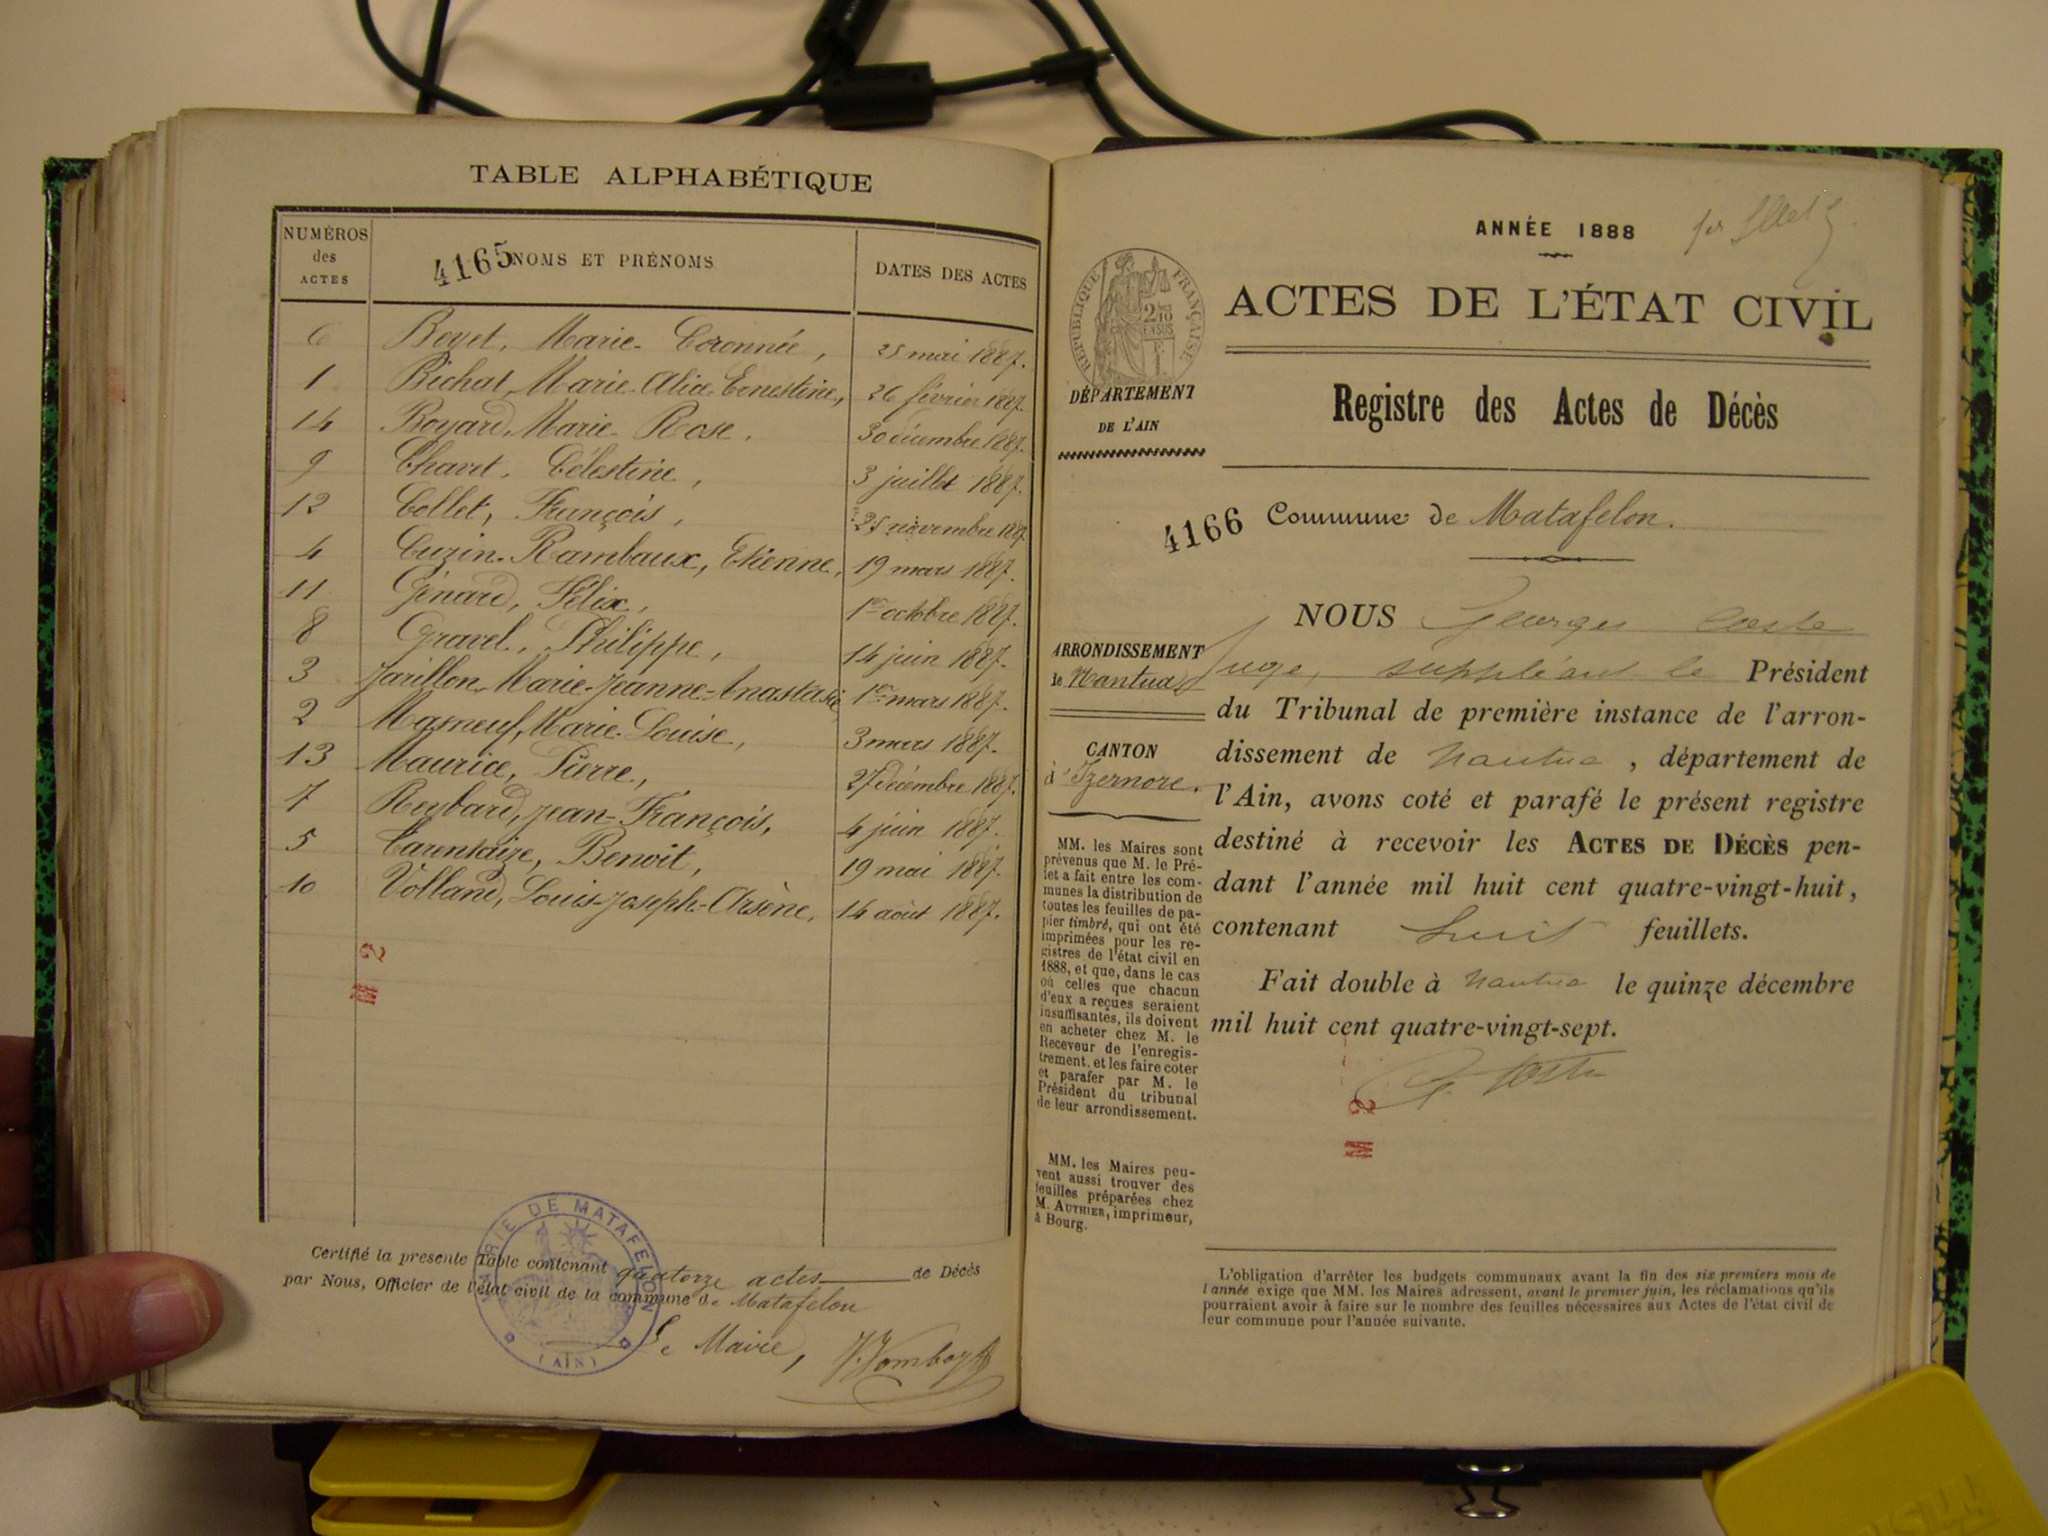 TABLE ALPHABÉTIQUE
NUMÉROS des ACTES
4165
NOMS ET PRÉNOMS
DATES DES ACTES
6 Marie 25 mai 1887.
1 Bichat, Marie-Alice-Ernestine, 26 février 1887.
14 Boyard, Marie-Rose. 30 décembre 1887.
9 Chavet, Célestine, 3 juillet 1887.
12 Collet, François, 25 novembre 1887
4 Cuzin-Rambaux, Etienne, 19 mars 1887.
11 Génard, Félix, 1er octobre 1887.
8 Gravel, Philippe, 14 juin 1887.
3 Javillon, Marie-Jeanne-Anastasie 1er mars 1887.
2 Marie-Louise, 3 mars 1887.
13 Maurice, Pierre, 27 décembre 1887.
7 Jean-François, 4 juin 1887.
5 Tarentaize, Benoît, 19 mai 1887.
10 Volland, Louis-Joseph-Arsène, 14 août 1887.
2
Certifié la presente Table contenant quatorze actes de Décès
par Nous, Officier de l'état civil de la commune de Matafelon
Le Maire,
MAIRIE DE MATAFELON
(AIN)
ANNÉE 1888
RÉPUBLIQUE FRANÇAISE
2/10 EN SUS
ACTES DE L'ÉTAT CIVIL
DÉPARTEMENT
DE L'AIN
Registre des Actes de Décès
4166
Commune de Matafelon.
ARRONDISSEMENT
de Nantua
CANTON
d'Izernore.
MM. les Maires sont
prévenus que M. le Pré-
fet a fait entre les com-
munes la distribution de
toutes les feuilles de pa-
pier timbré, qui ont été
imprimées pour les re-
gistres de l'état civil en
1888, et que, dans le cas
où celles que chacun
d'eux a reçues seraient
insuffisantes, ils doivent
en acheter chez M. le
Receveur de l'enregis-
trement, et les faire coter
et parafer par M. le
Président du tribunal
de leur arrondissement.
MM. les Maires peu-
vent aussi trouver des
feuilles préparées chez
M. AUTHIER, imprimeur,
à Bourg.
NOUS Georges Coste
Juge, suppléant le Président
du Tribunal de première instance de l'arron-
dissement de Nantua, département de
l'Ain, avons coté et parafé le présent registre
destiné à recevoir les ACTES DE DÉCÈS pen-
dant l'année mil huit cent quatre-vingt-huit,
contenant huit feuillets.
Fait double à Nantua le quinze décembre
mil huit cent quatre-vingt-sept.
G. Coste
2
L'obligation d'arrêter les budgets communaux avant la fin des six premiers mois de
l'année exige que MM. les Maires adressent, avant le premier juin, les réclamations qu'ils
pourraient avoir à faire sur le nombre des feuilles nécessaires aux Actes de l'état civil de
leur commune pour l'année suivante.